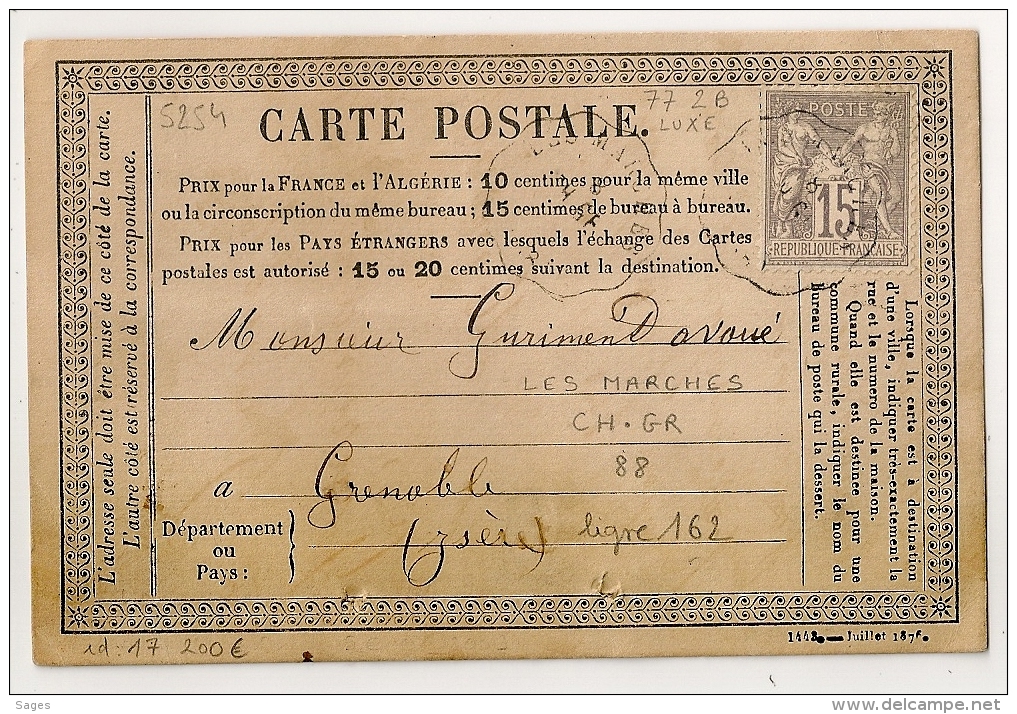 5254
77 2B
LUXE
CARTE POSTALE.
POSTE
15
REPUBLIQUE FRANÇAISE
PRIX pour la FRANCE et l'ALGÉRIE : 10 centimes pour la même ville
ou la circonscription du même bureau ; 15 centimes de bureau à bureau.
PRIX pour les PAYS ÉTRANGERS avec lesquels l'échange des Cartes
postales est autorisé : 15 ou 20 centimes suivant la destination.
Monsieur Gurimen Davoué
LES MARCHES
CH.GR
88
a Grenoble
Département
ou
Pays :
(Isère)
ligne 162
L'adresse seule doit être mise de ce côté de la carte.
L'autre côté est réservé à la correspondance.
Lorsque la carte est à destination
d'une ville, indiquer très-exactement la
rue et le numero de la maison.
Quand elle est destinée pour une
commune rurale, indiquer le nom du
Bureau de poste qui la dessert.
1448. — Juillet 1876.
id : 17 200€
Sages
www.delcampe.net